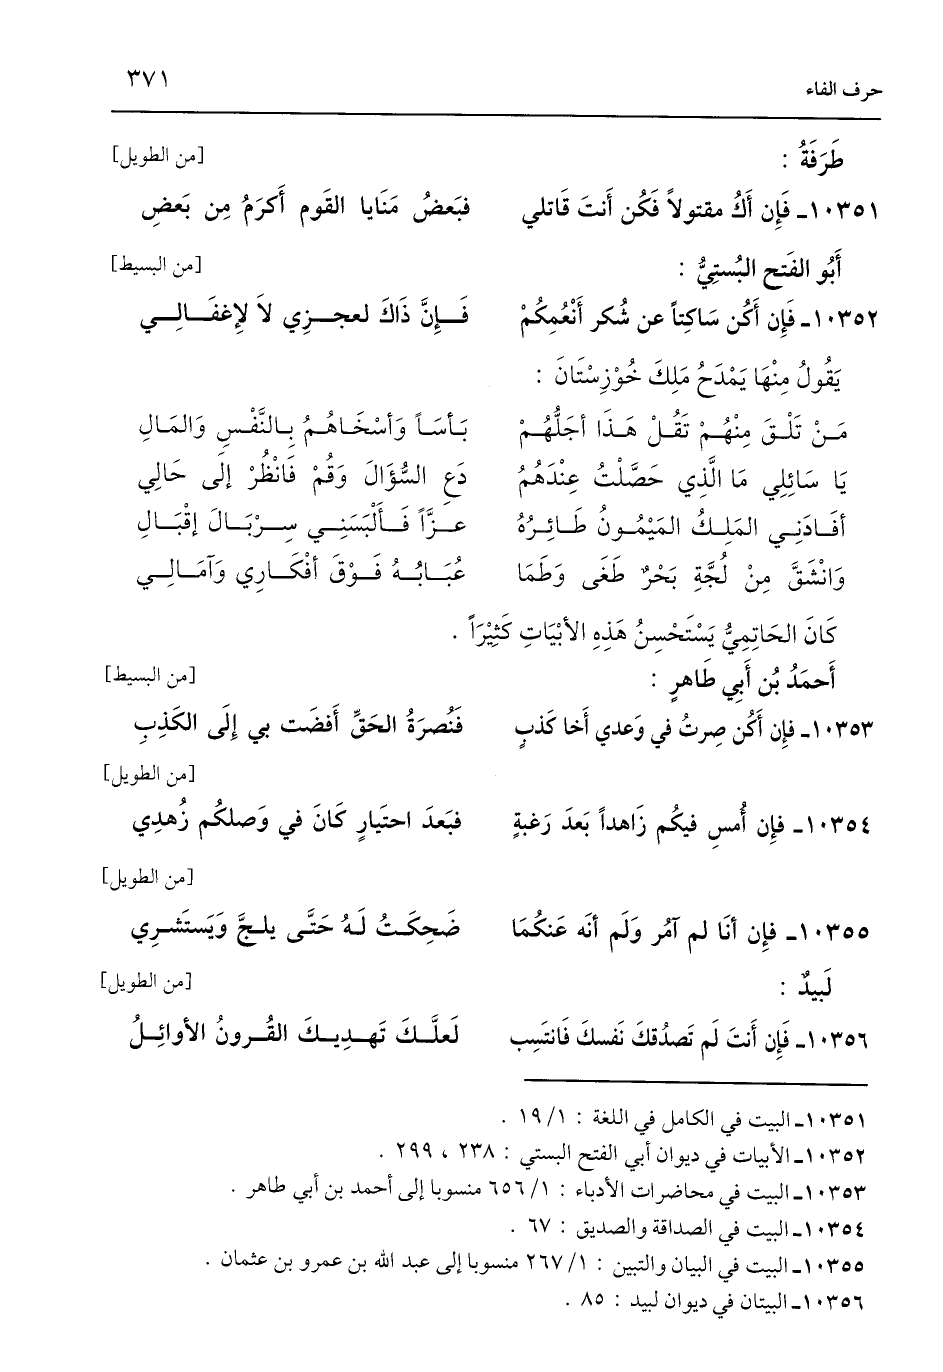 حرف الفاء ٣٧١
طَرَفَةُ : [من الطويل]
١٠٣٥١ـ فَإِن أَكُ مقتولاً فَكُن أَنتَ قَاتلي فبَعضُ مَنَايا القَوم أَكرَمُ مِن بَعضِ
أَبُو الفَتح البُستِيُّ : [من البسيط]
١٠٣٥٢ـ فَإِن أَكُن سَاكِتاً عن شُكر أَنْعُمِكُمْ فَـإِنَّ ذَاكَ لعجـزِي لاَ لإغفَـالِـي
يَقُولُ مِنْهَا يَمْدَحُ مَلِكَ خُوْزِسْتَانَ :
مَـنْ تَلْـقَ مِنْهُـمْ تَقُـلْ هَـذَا أجَلُّهُـمْ بَـأسَـاً وَأسْخَـاهُـمُ بِـالنَّفْـسِ وَالمَـالِ
يَا سَائِلِي مَا الَّذِي حَصَّلْتُ عِنْدَهُمُ دَعِ السُّؤَالَ وَقُمْ فَانْظُرْ إلَى حَالِي
أفَـادَنِـي المَلِـكُ المَيْمُـونُ طَـائِـرُهُ عـزَّاً فَـألْبَسَنِـي سِـرْبَـالَ إقْبَـالِ
وَانْشَقَّ مِنْ لُجَّةِ بَحْرٌ طَغَى وَطَمَا عُبَـابُـهُ فَـوْقَ أفْكَـارِي وَآمَـالِـي
كَانَ الحَاتِمِيُّ يَسْتَحْسِنُ هَذِهِ الأبْيَاتِ كَثِيْرَاً .
أَحمَدُ بُن أَبي طَاهرٍ : [من البسيط]
١٠٣٥٣ـ فإِن أَكُن صِرتُ في وَعدي أَخا كَذبٍ فَنُصرَةُ الحَقِّ أَفضَت بي إِلَى الكَذِبِ
[من الطويل]
١٠٣٥٤ـ فإِن أُمسِ فيكُم زَاهداً بَعدَ رَغبةٍ فبَعدَ احتَيارٍ كَانَ في وَصلكُم زُهدِي
[من الطويل]
١٠٣٥٥ـ فإِن أنَا لم آمُر وَلَم أنَه عَنكُمَا ضَحِكَـتُ لَـهُ حَتَّـى يلـجَّ وَيَستَشـرِي
لَبيدٌ : [من الطويل]
١٠٣٥٦ـ فَإِن أَنتَ لَم تَصدُقكَ نَفسكَ فَانتَسِب لَعلَّـكَ تَهـدِيـكَ القُـرونُ الأَوائِـلُ
١٠٣٥١ـ البيت في الكامل في اللغة : ١/ ١٩ .
١٠٣٥٢ـ الأبيات في ديوان أبي الفتح البستي : ٢٣٨ ، ٢٩٩ .
١٠٣٥٣ـ البيت في محاضرات الأدباء : ١/ ٦٥٦ منسوبا إلى أحمد بن أبي طاهر .
١٠٣٥٤ـ البيت في الصداقة والصديق : ٦٧ .
١٠٣٥٥ـ البيت في البيان والتبين : ١/ ٢٦٧ منسوبا إلى عبد الله بن عمرو بن عثمان .
١٠٣٥٦ـ البيتان في ديوان لبيد : ٨٥ .